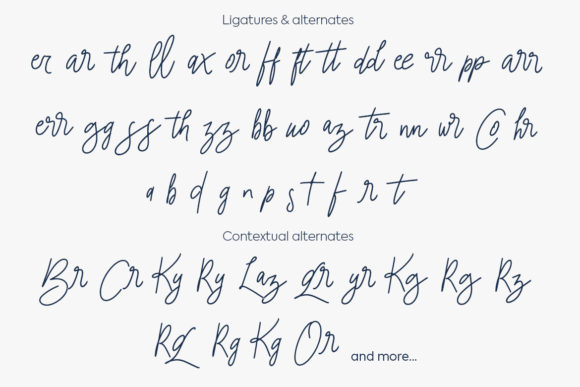 Ligatures & alternates
er ar th ll ax or ff ft tt dd ee rr pp arr
err gg ss th zz bb us az tr nn wr @ hr
a b d g n p s t f r t
Contextual alternates
Br Cr Ky Ry Laz gr yr Kg Rg Rz
Rg Rg Kg Or and more...